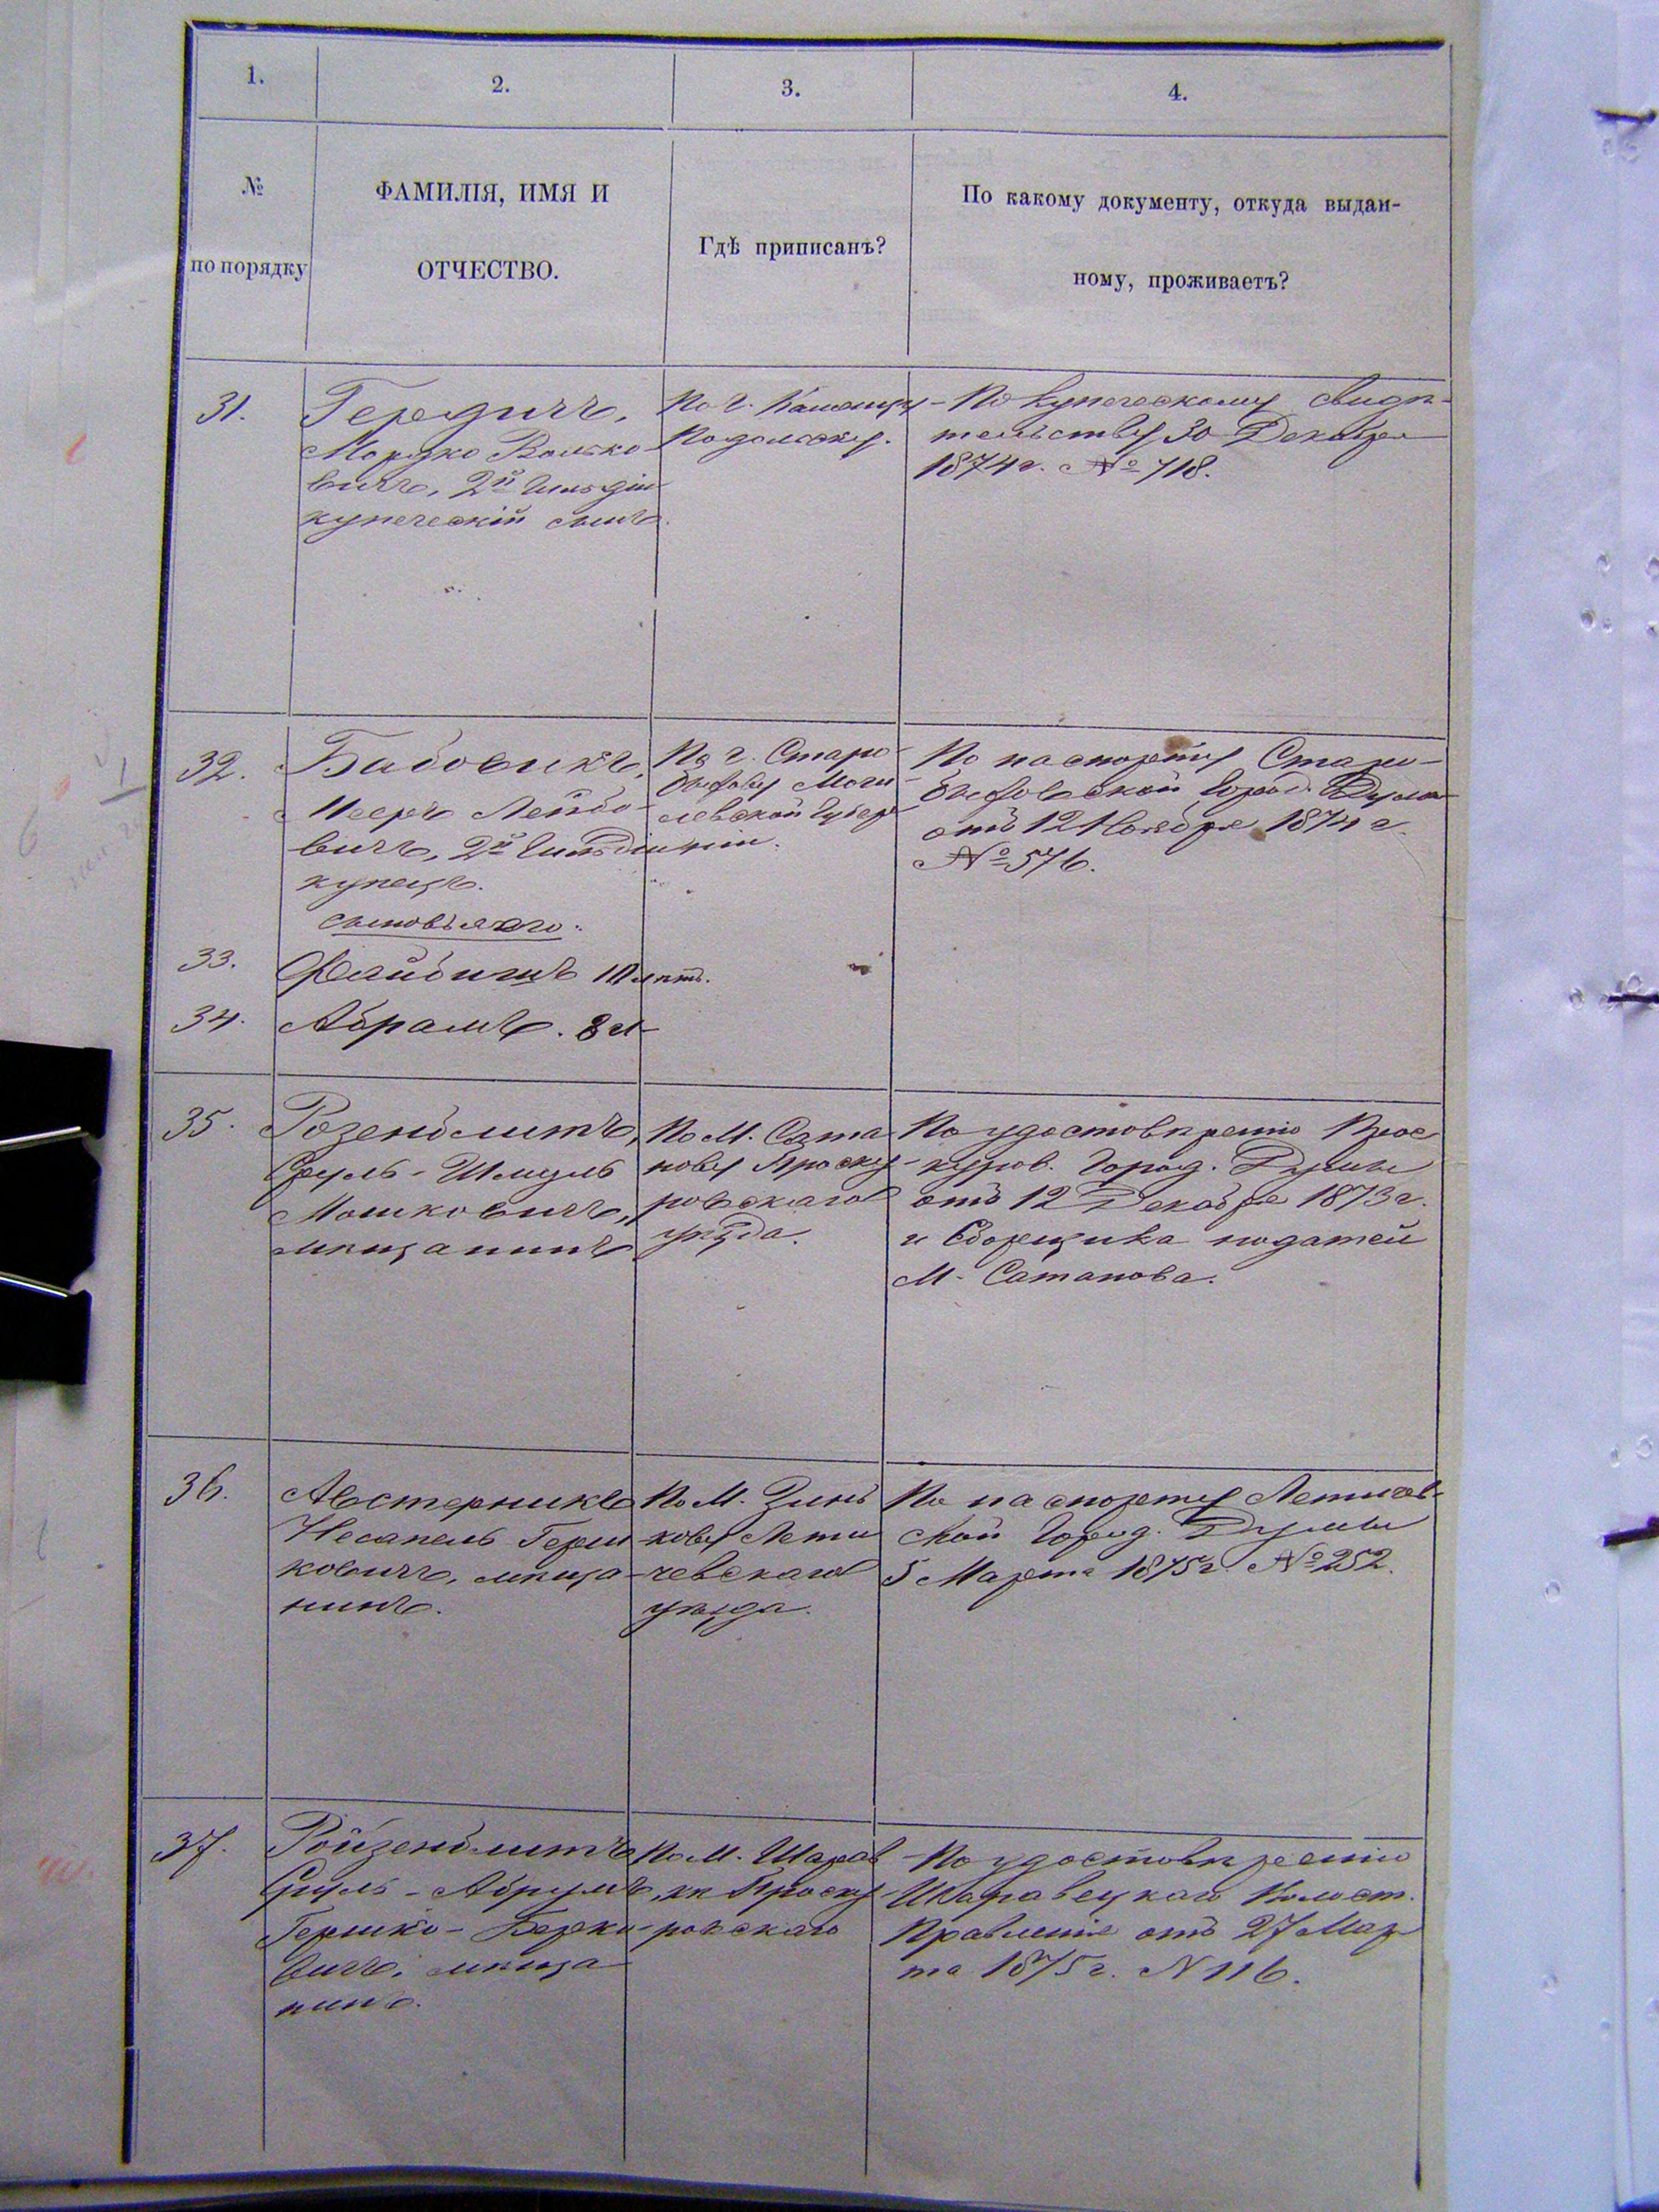 1.
2.
3.
4.
№
по порядку
ФАМИЛІЯ, ИМЯ И
ОТЧЕСТВО.
Гдѣ приписанъ?
По какому документу, откуда выдан-
ному, проживаетъ?
31.
Мордко Волько-
вичъ, 2й гильдіи
купеческій сынъ.
По г. Каменцу
Подольску.
По купеческому свидѣ-
тельству 30 Декабря
1874 г. № 718.
32.
Мееръ Лейбо-
вичъ, 2й гильдіи
купецъ.
сыновья его:
По г. Старо-
быхову Моги-
левской Губер-
ніи.
По паспорту Старо-
быховской Город. Думы
отъ 12 Ноября 1874 г.
№ 576.
33.
Файбишъ 10 лѣтъ.
34.
Абрамъ. 8 л
35.
Розенблитъ,
Сруль-Шмуль
Мошковичъ,
мѣщанинъ
По М. Сата
нову Проску-
ровскаго
уѣзда.
По удостовѣренію Прос
куров. Город. Думы
отъ 12 Декабря 1873 г.
и Сборщика податей
М. Сатанова.
36.
Австерникъ
Герш
ковичъ, мѣща-
нинъ.
По М. Зинь
кову Лети
чевскаго
уѣзда.
По паспорту Летичев-
ской Город. Думы
5 Марта 1875 г. № 252.
37.
Ройзенблитъ
Сруль-Абрумъ
Гершко-Берко-
вичъ, мѣща
нинъ.
По М. Шарав
кѣ Проску-
ровскаго
По удостовѣренію
Шаравецкаго Волост.
Правленія отъ 27 Мар
та 1875 г. N 116.